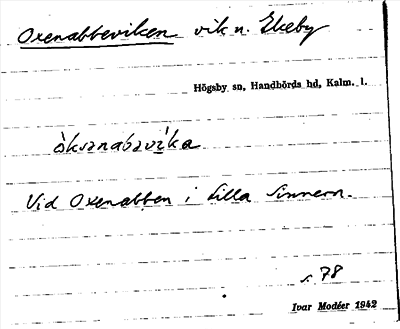 Oxenabbeviken vik n. Ekeby
Högsby sn, Handbörds hd, Kalm. l.
òksənabəvı̀ka
Vid Oxenabben i Lilla Sinnern.
s. 78
Ivar Modéer 1942